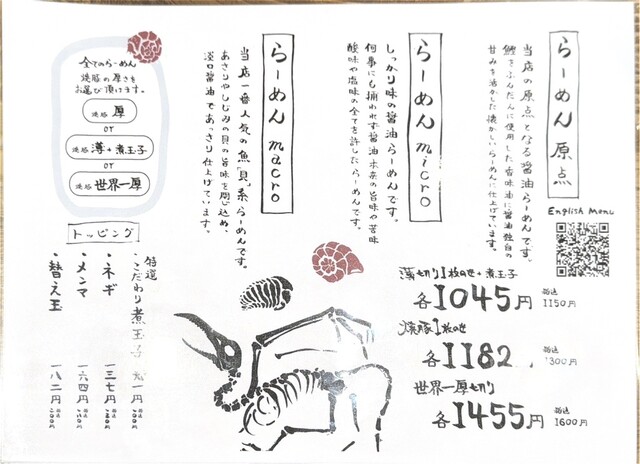 らーめん 原点
当店の原点となる醤油らーめんです。
鰹をふんだんに使用した香味油に醤油独自の
甘みを活かした懐かしいらーめんに仕上げています。
らーめん micro
しっかり味の醤油らーめんです。
何事にも捕われず醤油本来の旨味や苦味
酸味や塩味の全てを許したらーめんです。
らーめん macro
当店一番人気の魚貝系らーめんです。
あさりやしじみの貝の旨味を閉じ込め、
淡口醤油であっさり仕上げています。
全てのらーめん
焼豚の厚さを
お選び頂けます。
焼豚 厚
or
焼豚 薄+煮玉子
or
焼豚 世界一厚
English Menu
薄切り1枚のせ+煮玉子
各1045円 税込1150円
焼豚1枚のせ
各1182円 税込1300円
世界一厚切り
各1455円 税込1600円
トッピング
・こだわり煮玉子
・ネギ 一三七円
・メンマ 一六四円
・替え玉 一八二円